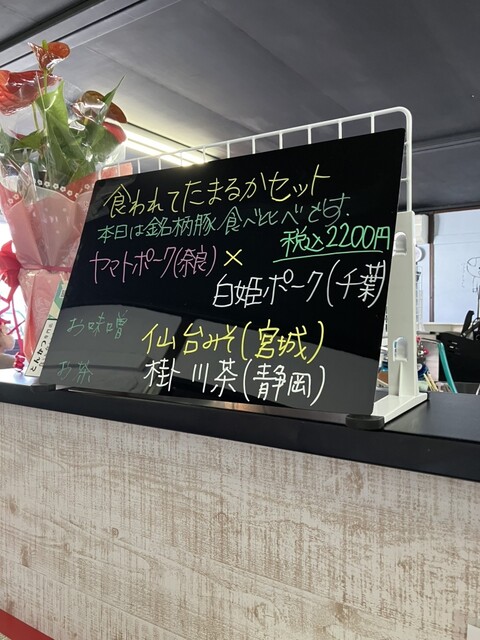 食われてたまるかセット
本日は銘柄豚食べ比べです.
税込2200円
ヤマトポーク(奈良) ×
白姫ポーク(千葉)
お味噌 仙台みそ(宮城)
お茶 掛川茶(静岡)